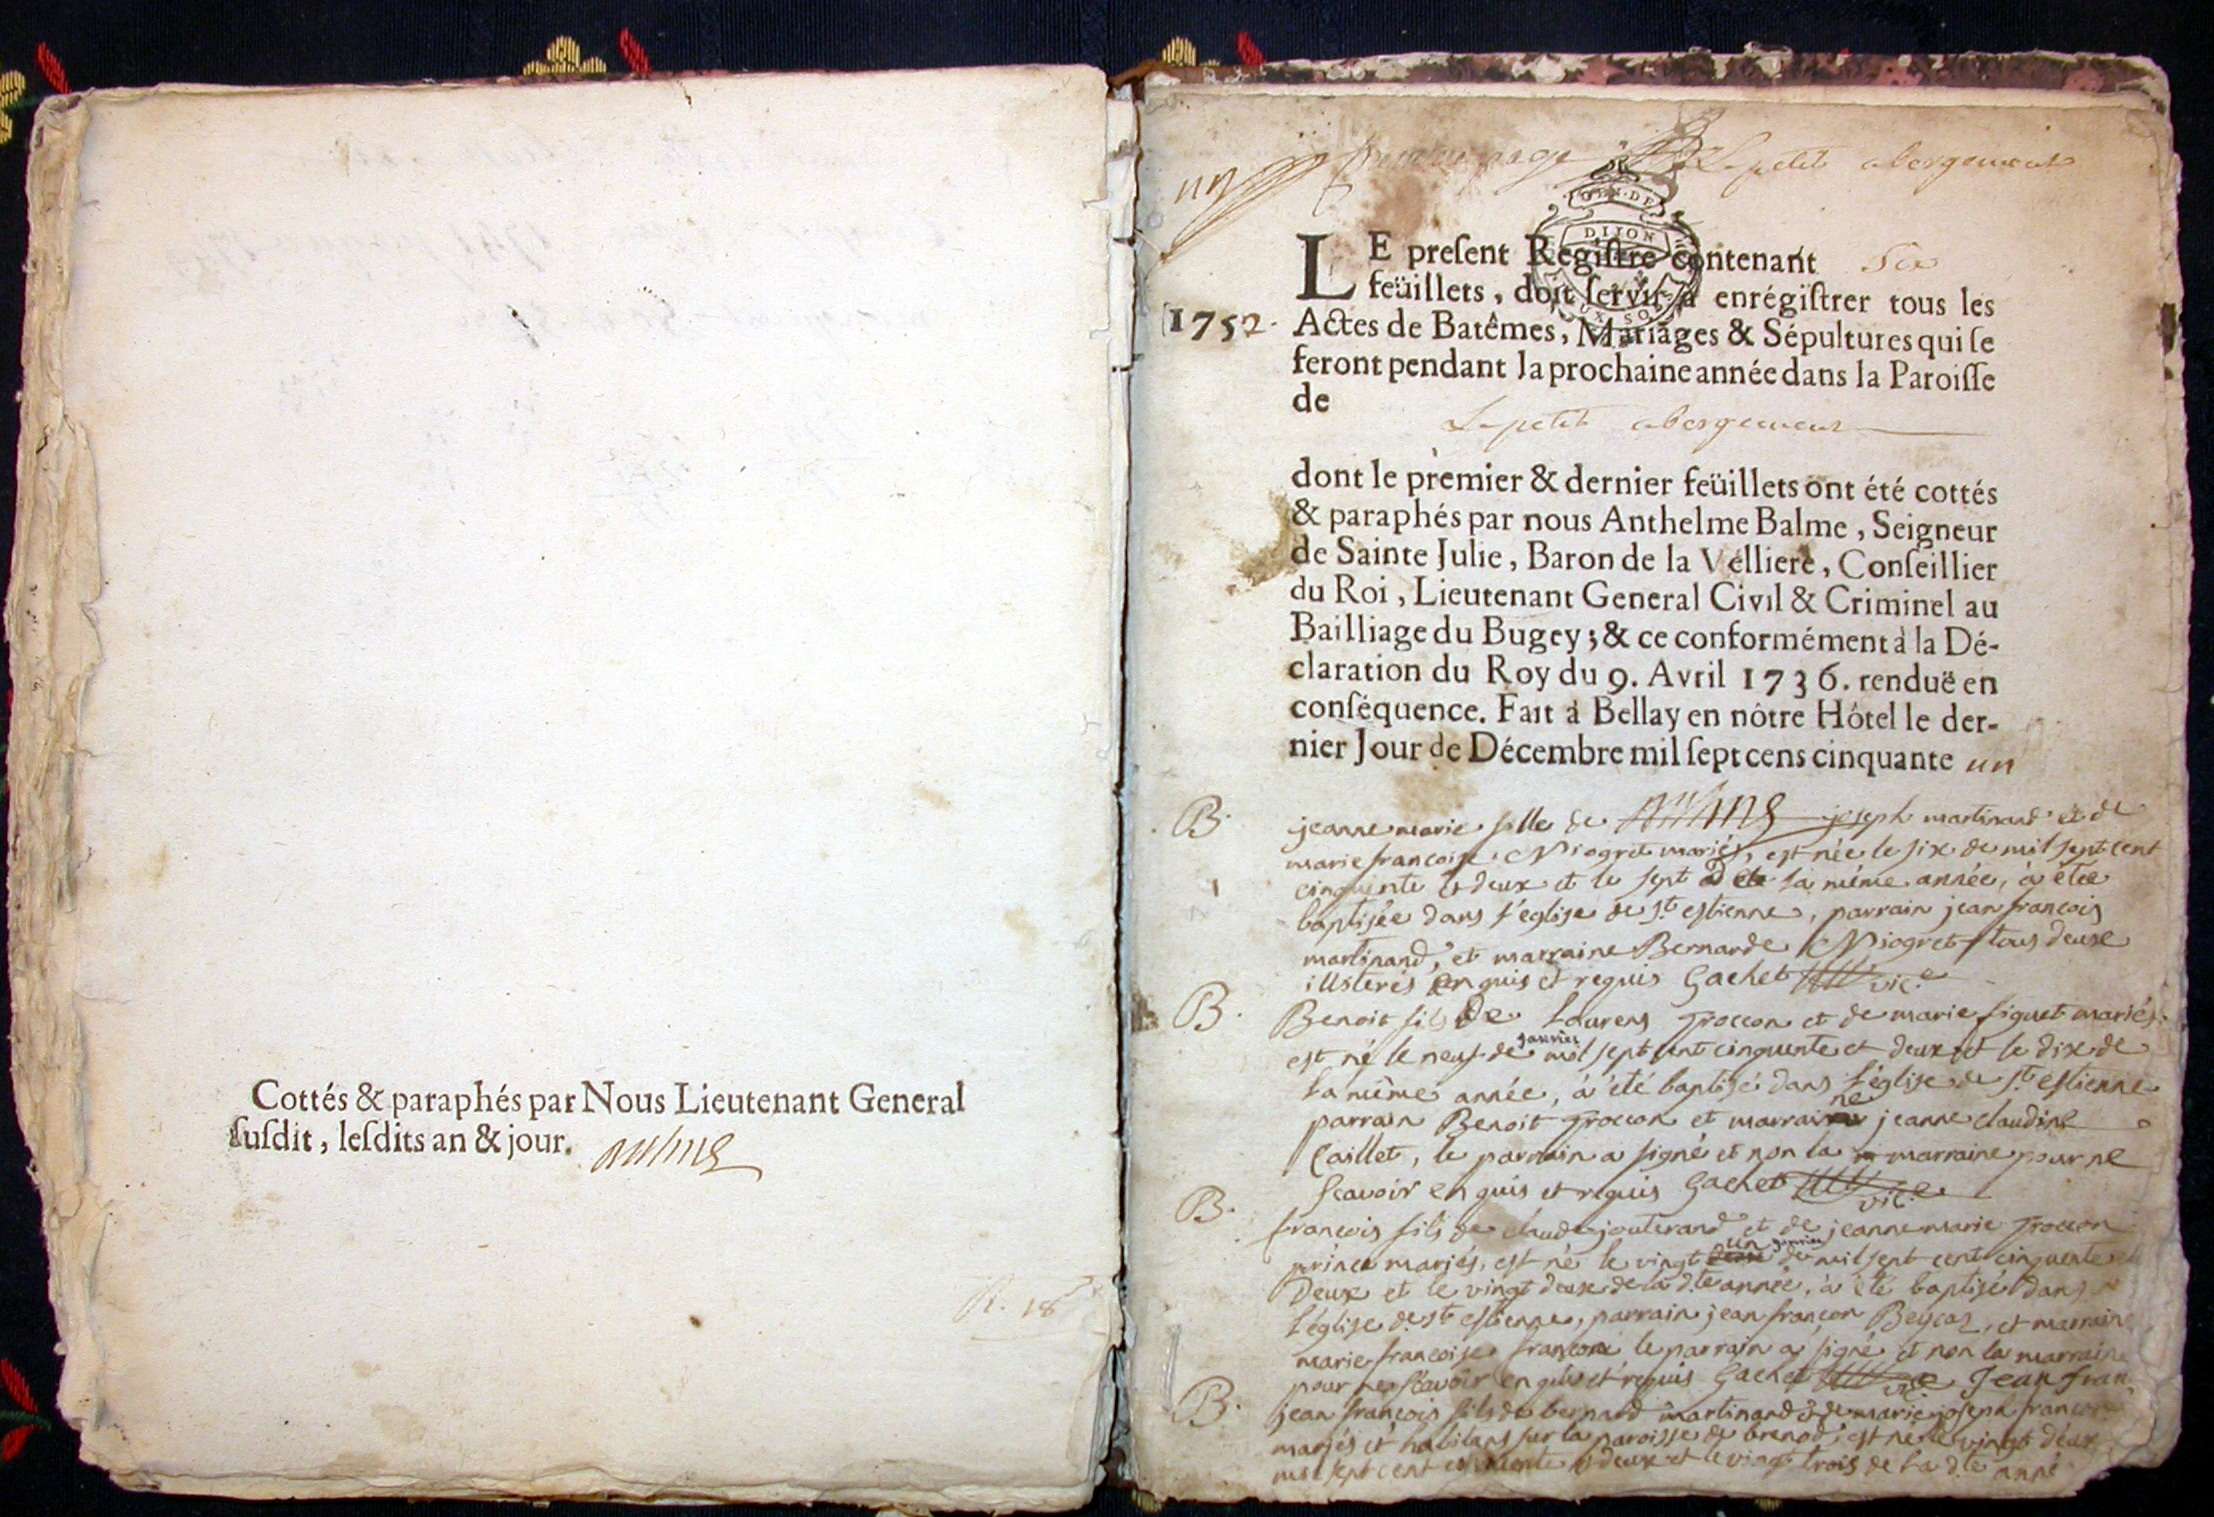 Cottés & paraphés par Nous Lieutenant General
susdit, lesdits an & jour.
R. 18
un premiere page Le petit abergement
GEN. DE
DIJON
DEUX SOLS
LE preſent Regiſtre contenant Six
feüillets, doit ſervir à enrégiſtrer tous les
1752. Actes de Batêmes, Mariages & Sépultures qui ſe
feront pendant la prochaine année dans la Paroiſſe
de
Le petit abergement
dont le premier & dernier feüillets ont été cottés
& paraphés par nous Anthelme Balme, Seigneur
de Sainte Julie, Baron de la Velliere, Conſeillier
du Roi, Lieutenant General Civil & Criminel au
Bailliage du Bugey; & ce conformément à la Dé-
claration du Roy du 9. Avril 1736. renduë en
conſéquence. Fait à Bellay en nôtre Hôtel le der-
nier Jour de Décembre mil ſept cens cinquante un
B. jeanne marie fille de joseph martinand et de
marie francoise Niogret mariés, est née le six de mil sept cent
cinquente et deux et le sept de la même année, à étée
baptisée dans l'eglise de st. estienne, parrain jean francois
martinand, et marraine Bernarde Niogret tous deux
illsterés enquis et requis Gachet vic.e
B. Benoit fils De Laurens Troccon et de marie figuet mariés
est né le neuf de janvier mil sept cent cinquente et deux et le dix de
la même année, à été baptisé dans l'église de st. estienne
parrain Benoit Troccon et marraine jeanne claudine
Caillet, le parrain a signé et non la marraine pour ne
scavoir enquis et requis Gachet vic.e
B. francois fils de claude jouterand et de jeanne marie Troccon
prince mariés, est né le vingt un janvier de mil sept cent cinquente et
Deux et le vingt deux de la d.te année, à été baptisé dans
l'église de st estienne, parrain jean françon Beycoz, et marraine
marie francoise françon le parrain a signé et non la marraine
pour ne scavoir enquis et requis Gachet vic.e Jean Fran
B. jean francois fils de bernard martinand & de marie joseph françon
mariés et habitans sur la paroisse de brenod, est né le vingt deux
mil sept cent cinquente et deux et le vingt trois de la d.te anné